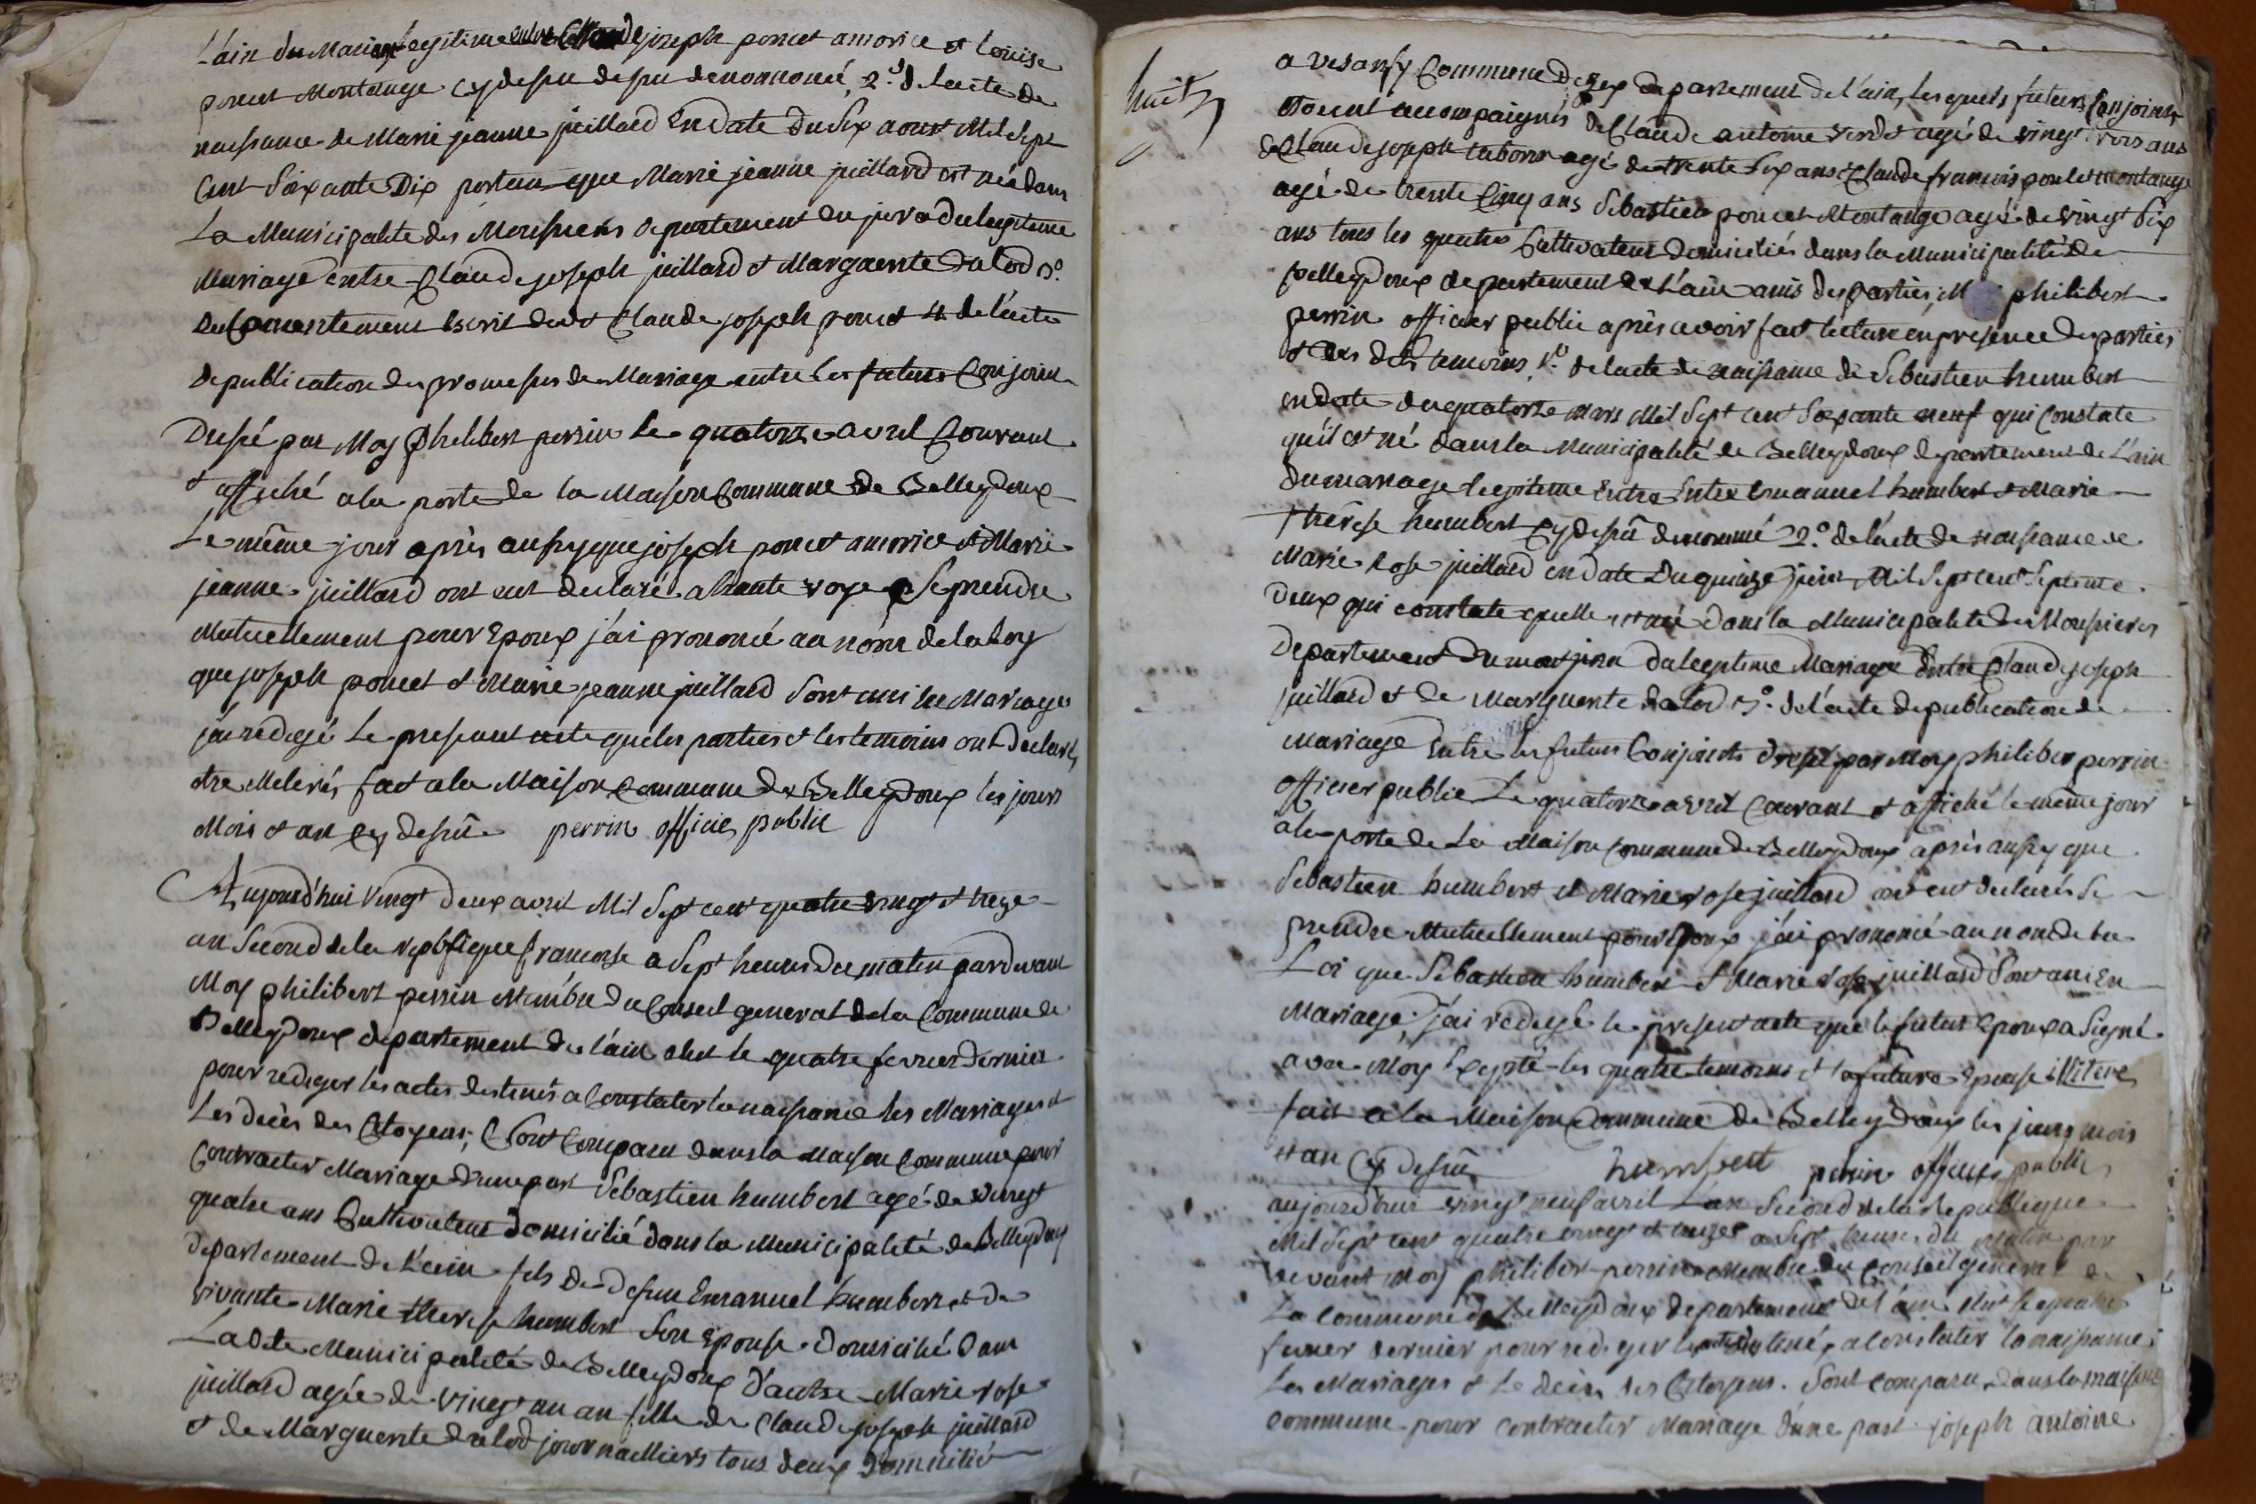 L'ain du Mariage legitime entre Claude joseph poncet amorice et louise
poncet Montange cy dessu denommé, 2.° de l'acte de
naissance de Marie jeanne juillard En date du Six aoust Mil Sept
Cent Soixante Dix portant que Marie jeanne juillard est née dans
La Municipalité des Moussieres departement du jura du legitime
Mariage entre Claude joseph juillard et Marguerite dalod 3.°
du Consentement Escrit dudt Claude joseph poncet 4 de l'acte
de publication des promesses de Mariage entre les futurs Conjoins
Dressé par Moy Philibert perrin Le quatorze avril Courant
et affiché a la porte de la Maison Commune de Belleydoux
Le même jour après aussy que joseph poncet amorice et Marie
jeanne juillard ont eut declaré a haute voye Se prendre
Mutuellement pour Epoux j'ai prononcé au nom de la loy
que joseph poncet et Marie jeanne juillard Sont uni en Mariage
j'ai redigé Le present acte que les parties et les temoins ont declaré
etre illeterés fait a la Maison Commune de Belleydoux les jours
Mois et an cy dessu perrin officier public
Aujourd'hui Vingt deux avril Mil Sept cent quatre vingt et treize
an Second de la republique francoise a Sept heures du matin pardevant
Moy philibert perrin Membre du Conseil general de la Commune de
Belleydoux departement de l'ain elut le quatre fevrier dernier
pour rediger les actes destinés a Constater la naissance les Mariages et
Les decès des Citoyens, Sont Comparu dans la maison Commune pour
Contracter Mariage d'une part Sebastien humbert agé de vingt
quatre ans Cultivateur domicilié dans la Municipalité de Belleydoux
departement de l'ain fils de defun Emanuel humbert et de
vivante Marie therese humbert Son Epouse domicilié dans
Ladte Municipalité de Belleydoux d'autre Marie rose
juillard agée de vingt un an fille de Claude joseph juillard
et de Marguerite dalod journailliers tous deux domicilié
huit
a vesansy Commune de gex departement de l'ain, les quels futurs Conjoins
etoient accompaignés de Claude antoine verdet agé de vingt trois ans
de Claude joseph tabour agé de trente Six ans Claude francois poncet montange
agé de trente Cinq ans Sebastien poncet Montange agé de vingt Six
ans tous les quatres Cultivateur domiciliés dans la Municipalité de
Belleydoux departement de L'ain amis des parties, Moi philibert
perrin officier public après avoir fait lecture en presence des parties
et des dts temoins, 1.° de l'acte de naissance de Sebastien humbert
en date du quatorze mars Mil Sept cent Soixante neuf qui Constate
qu'il est né dans la Municipalité de Belleydoux departement de l'ain
du mariage legitime Entre Entre Emanuel humbert et Marie
therese humbert cy dessu denommé 2.° de l'acte de naissance de
Marie rose juillard en date du quinze juin Mil Sept cent Septente
deux qui constate quelle est né dans la Municipalité des Moussieres
departement du mont jura du legitime Mariage Entre Claude joseph
juillard et de Marguerite dalod 3.° de l'acte de publication de
Mariage Entre les futurs Conjoints dressé par Moy philibert perrin
officier public Le quatorze avril Courant et affiché le même jour
a la porte de La Maison Commune de Belleydoux après aussy que
Sebastien humbert et Marie rose juillard ont eut declarés Se
prendre Mutuellement pour Epoux j'ai prononcé au nom de la
Loi que Sebastien humbert et Marie rose juillard Sont uni En
Mariage, j'ai redigé le present acte que le futur Epoux a Signé
avec Moy Excepté les quatre temoins et la future Epouse illiteré
fait a la Maison Commune de Belleydoux les jours mois
et an cy dessu humbert perrin officier public
aujourd'hui vingt neuf avril L'an Second de la republique
Mil Sept cent quatre vingt et treize a Sept heures du matin par
devant Moy philibert perrin Membre du Conseil general de
La Commune de Belleydoux departement de l'ain elut le quatre
fevrier dernier pour rediger les actes destiné, a Constater la naissance,
Les Mariages et Le decès des Citoyens. Sont comparu dans la maison
commune pour contracter Mariage d'une part joseph antoine